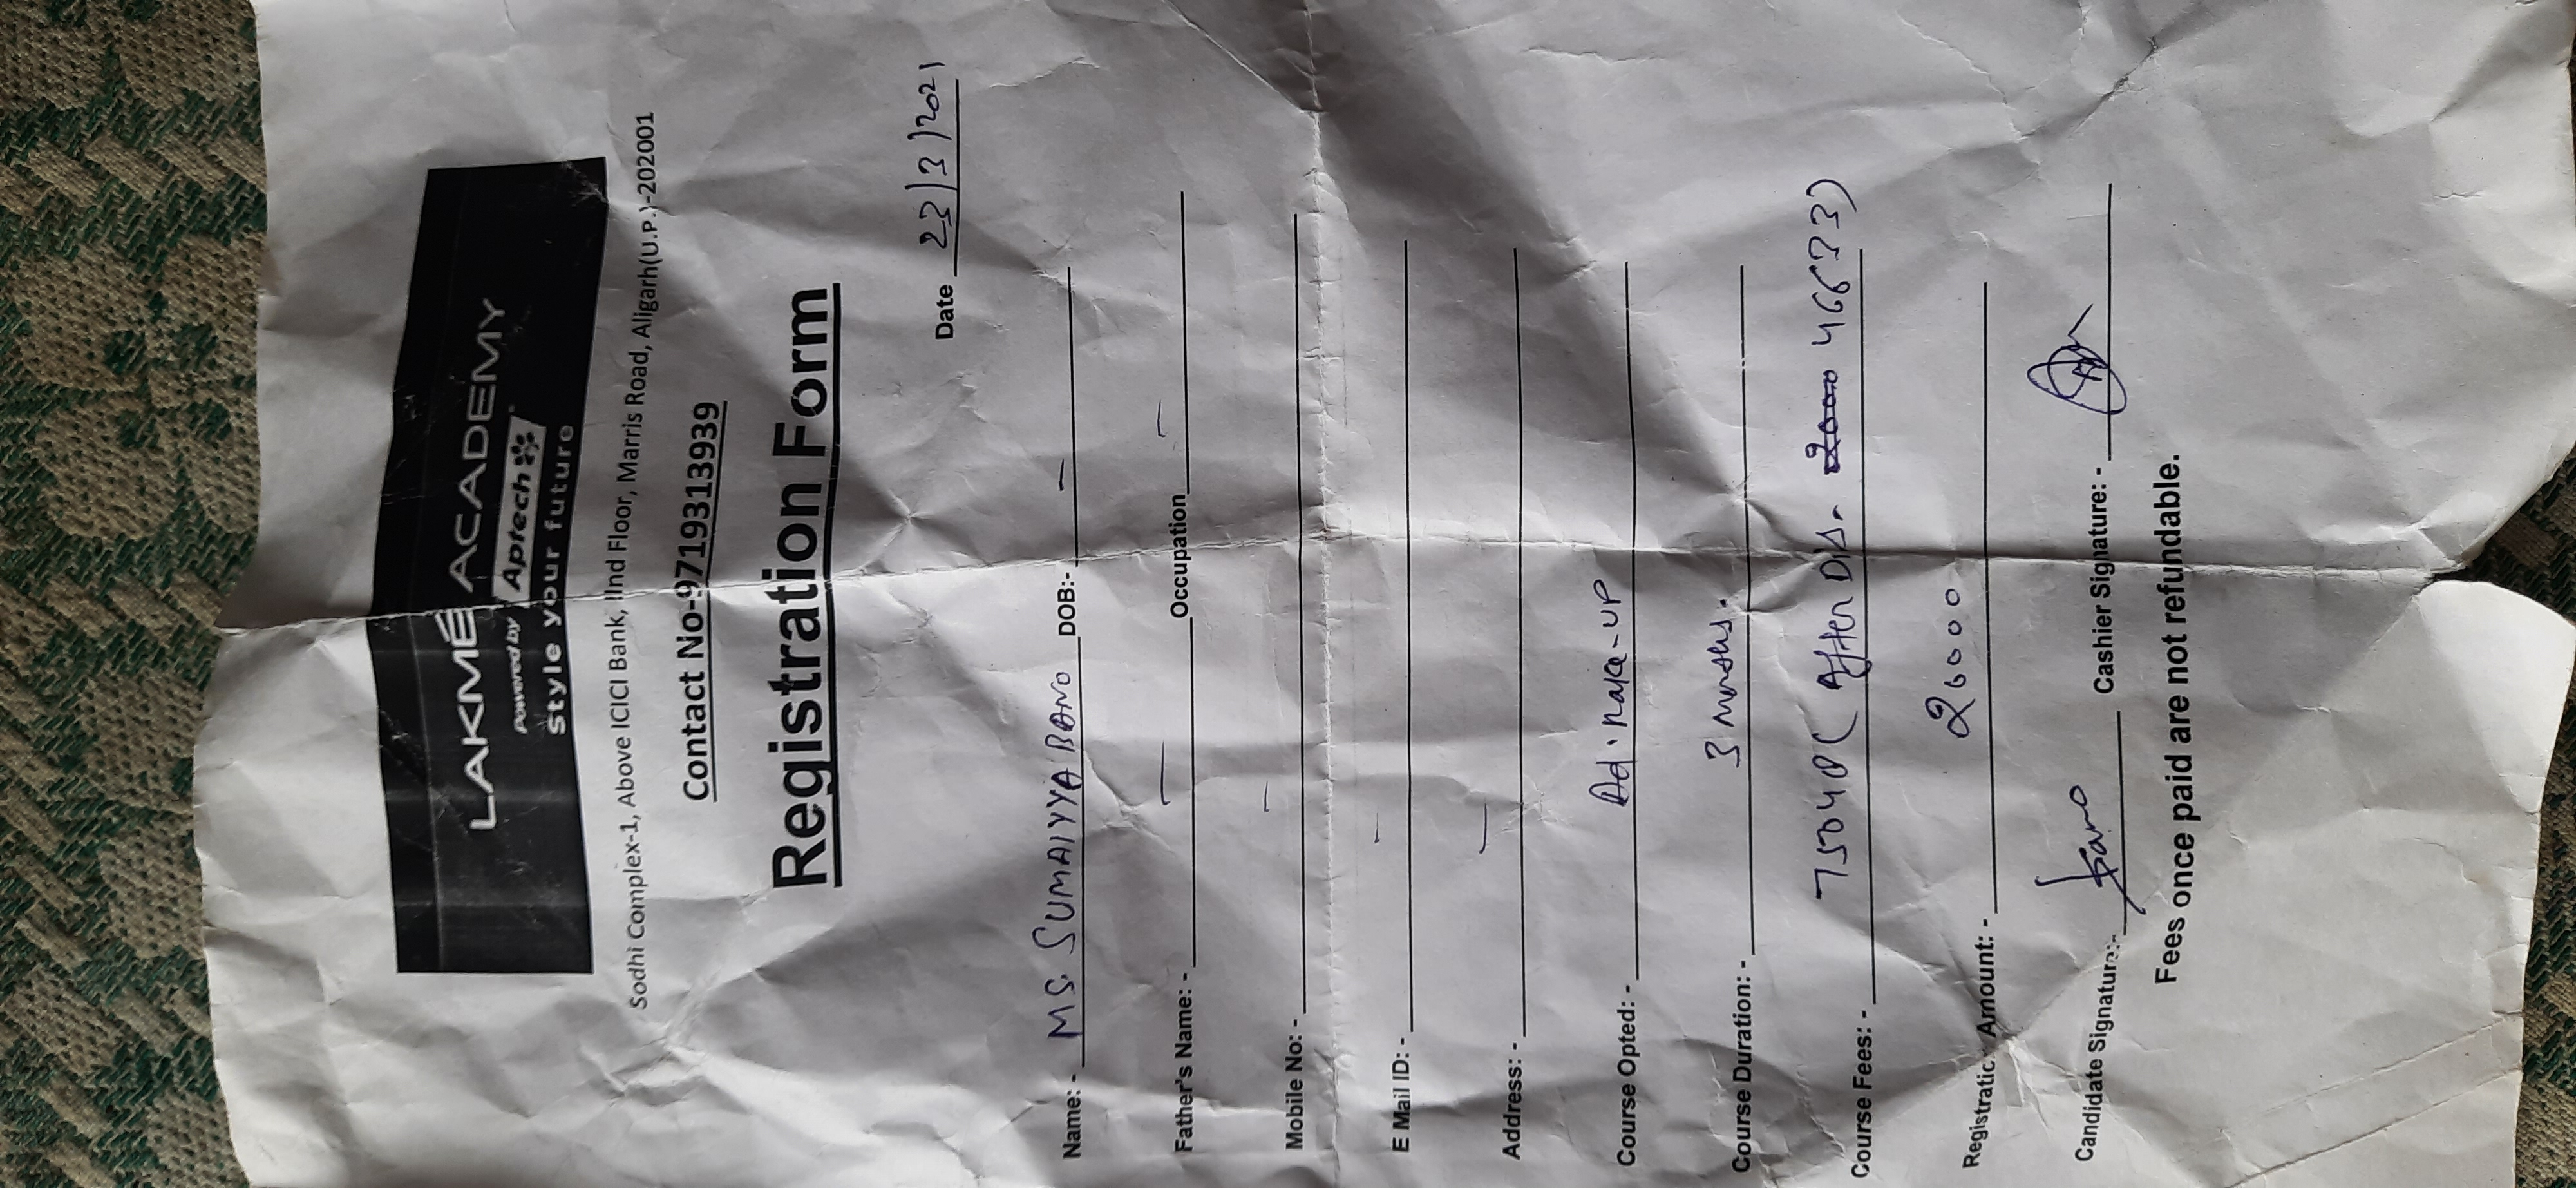 LAKMÉ ACADEMY
Powered by Aptech
Style your future
Sodhi Complex-1, Above ICICI Bank, IInd Floor, Marris Road, Aligarh(U.P.)-202001
Contact No-9719313939
Registration Form
Date 23/3/2021
Name: - MS. SUMAIYYA BANO DOB:- —
Father's Name: - — Occupation —
Mobile No: - —
E Mail ID: - —
Address: - —
Course Opted: - Ad. Make-UP
Course Duration: - 3 Months.
Course Fees: - 75048 ( After Dis. 2000 46633)
Registration Amount: - 20000
Candidate Signature:- Bano Cashier Signature: -
Fees once paid are not refundable.